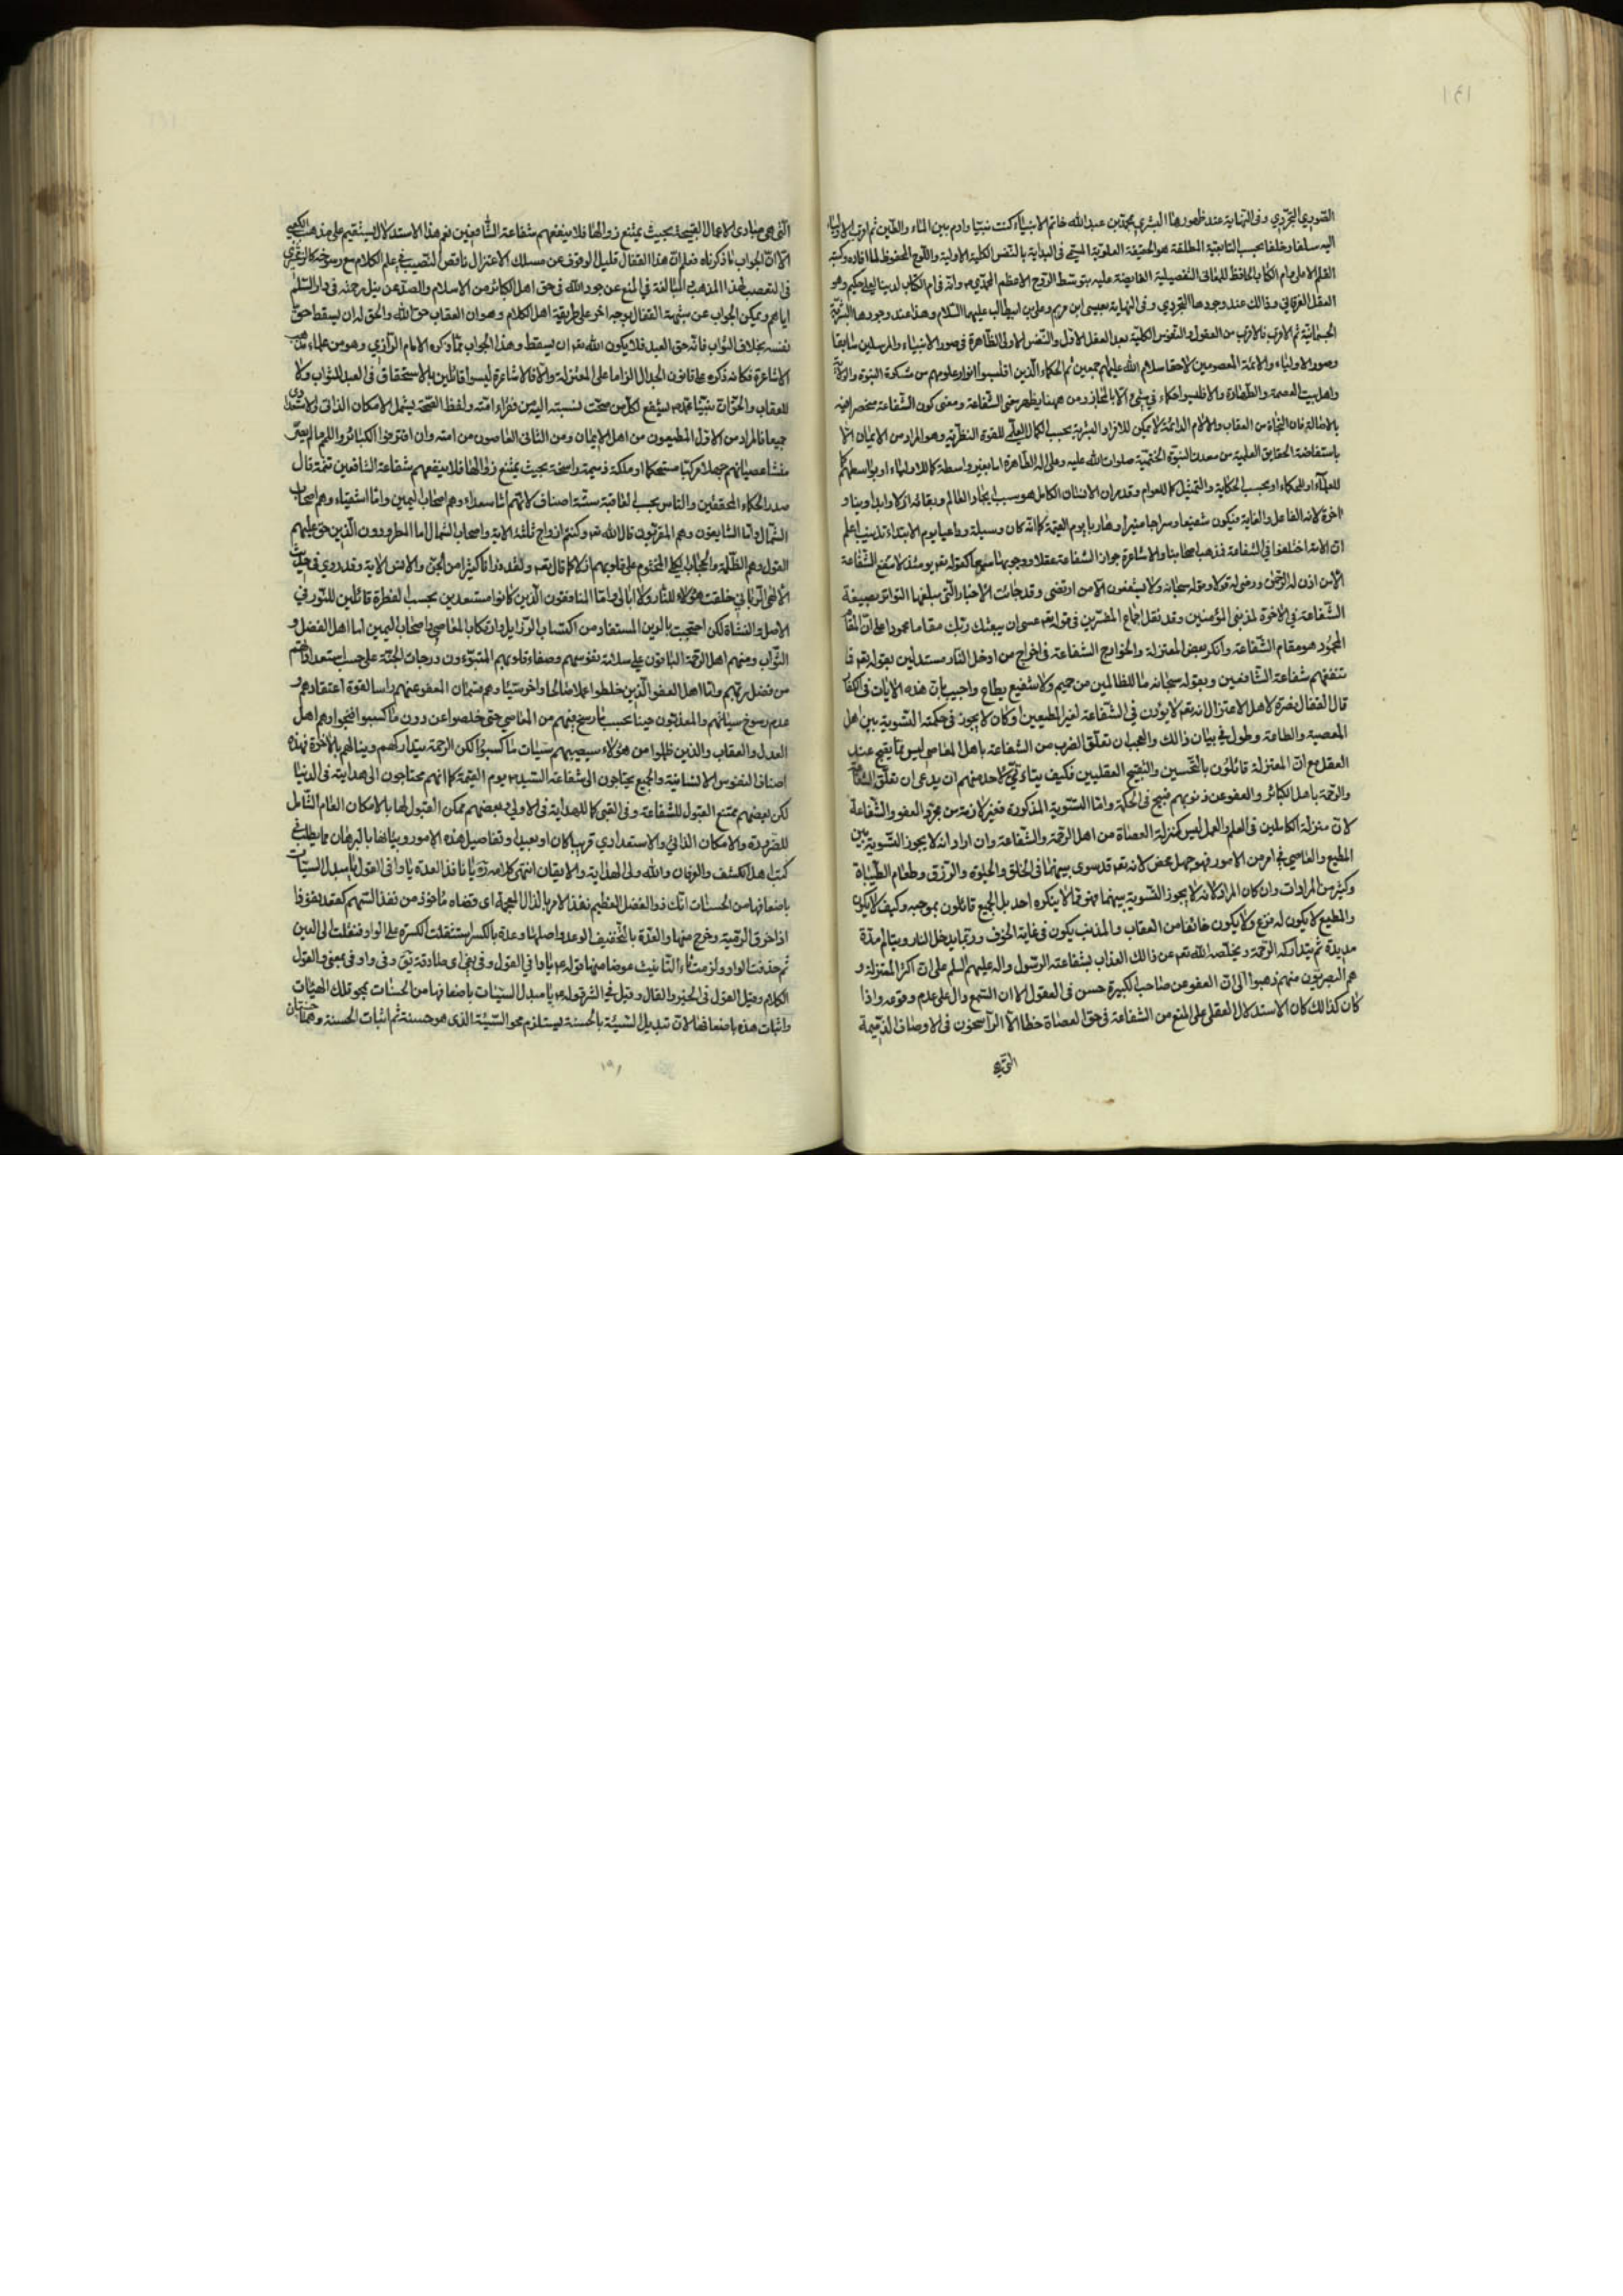 الصوري التجردي وفي النهاية عند ظهور هذا البشري محمد بن عبد الله خاتم الانبياء كنت نبيا وادم بين الماء والطين ثم اقرب الاولياء
اليه سلفا وخلفا بحسب التابعية المطلقة هو الحقيقة العلوية المسمى في البداية بالنفس الكلية الاولية واللوح المحفوظ لما افاده وكتبه
القلم الاعلى وام الكتاب الحافظ للمعاني التفصيلية الفايضة عليه بتوسط الروح الاعظم المحمدي وانه في ام الكتاب لدينا لعلي حكيم وهو
العقل الفرقاني وذالك عند وجودها التجردي وفي النهاية بعيسى ابن مريم وعلي بن ابيطالب عليهما السلام وهذا عند وجودها البشرية
الجسمانية ثم الاقرب فالاقرب من العقول والنفوس الكلية بعد العقل الاول والنفس الاولى الظاهرة في صور الانبياء والمرسلين سابقا
وصور الاولياء والائمة المعصومين لاحقا سلام الله عليهم جمعين ثم الحكماء الذين اقتبسوا انوار علومهم من مشكوة النبوة والولاية
واهل بيت العصمة والطهارة والا فليسوا حكماء في شئ الا بالمجاز ومن ههنا يظهر معنى الشفاعة ومعنى كون الشفاعة منحصرا فيه
بالاصالة فان النجاة من العقاب والالام الدائمة لا يمكن للافراد البشرية بحسب الكمال العلمي للقوة النظرية وهو المراد من الايمان الا
باستفاضة الحقايق العلمية من معدن النبوة الختمية صلوات الله عليه وعلى اله الطاهرة اما بغير واسطة كما للاولياء او بواسطتهم كما
للعلماء او للحكماء او بحسب الحكاية والتمثيل كما للعوام وقد مر ان الانسان الكامل هو سبب ايجاد العالم وبقائه ازلا وابدا ودينا و
اخرة لانه الفاعل والغاية فيكون شفيعا وسراجا منيرا وهاديا يوم القيمة كما انه كان وسيلة وداعيا يوم الابتداء تذنيب اعلم
ان الامة اختلفوا في الشفاعة فذهب اصحابنا والاشاعرة جواز الشفاعة عقلا ووجوبها سمعا كقوله تعم يومئذ لا تنفع الشفاعة
الا من اذن له الرحمن ورضي له قولا وقوله سبحانه ولا يشفعون الا من ارتضى وقد جائت الاخبار التي مبلغها التواتر بصيغة
الشفاعة في الاخرة لمذنبي المؤمنين وقد نقل اجماع المفسرين في قوله تعم عسى ان يبعثك ربك مقاما محمودا على ان المقام
المحمود هو مقام الشفاعة وانكر بعض المعتزلة والخوارج الشفاعة في اخراج من ادخل النار مستدلين بقوله تعم فما
تنفعهم شفاعة الشافعين وبقوله سبحانه ما للظالمين من حميم ولا شفيع يطاع واجيب بان هذه الايات في الكفار
قال القفال نصرة لاهل الاعتزال انه تعم لا يؤذن في الشفاعة لغير المطيعين اذ كان لا يجوز في حكمته التسوية بين اهل
المعصية والطاعة وطول في بيان ذالك والعجب ان تعلق الضرب من الشفاعة باهل المعاصي ليس مما يقبح عند
العقل مع ان المعتزلة قائلون بالتحسين والتقبيح العقليين فكيف يتاتى لاحد منهم ان يدعي ان تعلق الشفاعة
والرحمة باهل الكبائر والعفو عن ذنوبهم قبيح في الحكمة واما التسوية المذكورة فغير لازمة من مجرد العفو والشفاعة
لان منزلة الكاملين في العلم والعمل ليس كمنزلة العصاة من اهل الرحمة والشفاعة وان اراد انه لا يجوز التسوية بين
المطيع والعاصي في امر من الامور فهو جهل محض لانه تعم قد سوى بينهما في الخلق والحيوة والرزق وطعام الطيبات
وكثير من المرادات وان كان المراد انه لا يجوز التسوية بينهما فهو مما لا ينكره احد بل الجميع قائلون بموجبه وكيف لا يكون
والمطيع لا يكون له فزع ولا يكون خائفا من العقاب والمذنب يكون في غاية الخوف وربما يدخل النار ويتالم مدة
مديدة ثم يتداركه الرحمة ويخلصه الله تعم عن ذالك العذاب بشفاعة الرسول واله عليهم السلم على ان اكثر المعتزلة و
هم البصريون منهم ذهبوا الى ان العفو عن صاحب الكبيرة حسن في العقول الا ان السمع دال على عدم وقوعه واذا
كان كذالك كان الاستدلال العقلي على المنع من الشفاعة في حق العصاة خطا الا الراسخون في الاوصاف الذميمة
التي هي
التي هي مبادى الاعمال القبيحة بحيث يمتنع زوالها فلا ينفعهم شفاعة الشافعين نعم هذا الاستدلال يستقيم على مذهب الكعبي
الا ان الجواب ما ذكرناه فعلم ان هذا القفال قليل الوقوف عن مسلك الاعتزال ناقص النصيب في علم الكلام مع رسوخه كالزمخشري
في التعصب لهذا المذهب والمبالغة في المنع عن جود الله في حق اهل الكبائر من الاسلام والصد عن نيل رحمته في دار السلم
اياهم ويمكن الجواب عن شبهة القفال بوجه اخر على طريقة اهل الكلام وهو ان العقاب حق الله والحق له ان يسقط حق
نفسه بخلاف الثواب فانه حق العبد فلا يكون الله تعم ان يسقط وهذا الجواب مما ذكره الامام الرازي وهو من علماء مذهب
الاشاعرة فكانه ذكره على قانون الجدال الزاما على المعتزلة والا فالاشاعرة ليسوا قائلين بالاستحقاق في العبد للثواب ولا
للعقاب والحق ان نبينا محمد يشفع لكل من صحت نسبته اليه من فقراء امته ولفظ الصحة يشمل الامكان الذاتي والاستعدادي
جميعا فالمراد من الاول المطيعون من اهل الايمان ومن الثاني العاصون من امته وان اقترفوا الكبائر واللمم ما لم يصر
منشا عصيانهم جهلا مركبا مستحكما او ملكة ذميمة راسخة بحيث يمتنع زوالها فلا ينفعهم شفاعة الشافعين تتمة قال
صدر الحكماء المحققين والناس بحسب العاقبة ستة اصناف لانهم اما سعداء وهم اصحاب اليمين واما اشقياء وهم اصحاب
الشمال واما السابقون وهم المقربون قال الله تعم وكنتم ازواج ثلثة الاية واصحاب الشمال اما المطرودون الذين حق عليهم
القول وهم الظلمة والحجاب الكلي المختوم على قلوبهم ازلا كما قال تعم ولقد ذرانا كثيرا من الجن والانس الاية وقد روي في حديث
الالهي الرباني خلقت هؤلاء للنار ولا ابالي واما المنافقون الذين كانوا مستعدين بحسب الفطرة قائلين للنور في
الاصل والنشاة لكن احتجبت بالرين المستفاد من اكتساب الرزايل وارتكاب المعاصي واصحاب اليمين اما اهل الفضل و
الثواب ومنهم اهل الرحمة الباقون على سلامة نفوسهم وصفاء قلوبهم المتبوءون درجات الجنة على حسب استعداداتهم
من فضل ربهم واما اهل العفو الذين خلطوا عملا صالحا واخر سيئا وهم قسمان المعفو عنهم راسا لقوة اعتقادهم و
عدم رسوخ سيئاتهم والمعذبون حينا بحسب ما رسخ فيهم من المعاصي حتى خلصوا عن درن ما كسبوا فنجوا وهم اهل
العدل والعقاب والذين ظلموا من هؤلاء سيصيبهم سيئات ما كسبوا لكن الرحمة تتداركهم وينالهم بالاخرة فهذه
اصناف النفوس الانسانية والجميع يحتاجون الى شفاعة السيد يوم القيمة كما انهم محتاجون الى هدايته في الدنيا
لكن بعضهم ممتنع القبول للشفاعة وفي العقبى كما للهداية في الاولى وبعضهم ممكن القبول لها بالامكان العام الشامل
للضرورة والامكان الذاتي والاستعدادي قريبا كان او بعيدا وتفاصيل هذه الامور وبيانها بالبرهان مما يطلب في
كتب اهل الكشف والعرفان والله ولي الهداية والايقان انتهى كلامه يا نافذ العدة يا وافي القول يا مبدل السيئات
باضعافها من الحسنات انك ذو الفضل العظيم نفذ الامر بالذال المعجمة اي قضاه مأخوذ من نفذ السهم كقعد نفوذا
اذا خرق الرمية وخرج منها والعدة بالتخفيف الوعد واصلها وعدة بالكسر استثقلت الكسرة على الواو فنقلت الى العين
ثم حذفت الواو ولزمت تاء التانيث عوضا منها قوله يا وافي القول وفى يفي اي صادقة يق وفى واوفى بمعنى والقول
الكلام وقيل القول في الخير والقال وقيل في الشر قوله يا مبدل السيئات باضعافها من الحسنات بمحو تلك الهيئات
واثبات هذه باضعافها لان تبديل السيئة بالحسنة يستلزم محو السيئة الذي هو حسنة ثم اثبات الحسنة وهما حسنتان